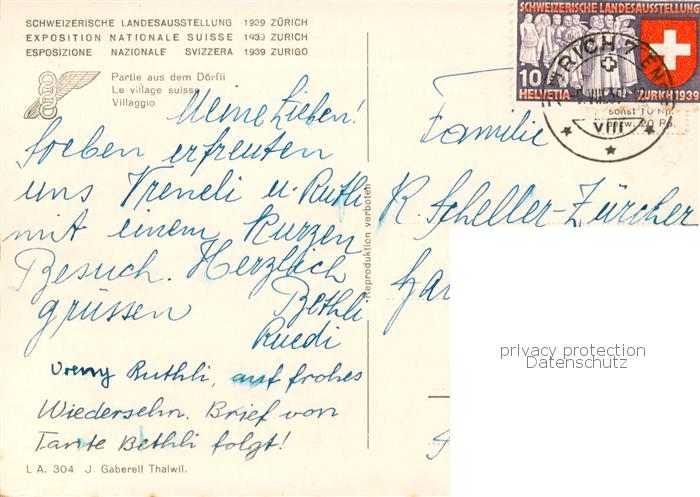 SCHWEIZERISCHE LANDESAUSSTELLUNG 1939 ZÜRICH
EXPOSITION NATIONALE SUISSE 1939 ZURICH
ESPOSIZIONE NAZIONALE SVIZZERA 1939 ZURIGO
Partie aus dem Dörfli
Le village suisse
Villaggio
Meine Lieben!
Soeben erfreuten
uns Vreneli u. Ruthli
mit einem kurzen
Besuch. Herzlich
grüssen Bethli
Ruedi
Vreny Ruthli, auf frohes
Wiedersehn. Brief von
Tante Bethli folgt!
L A. 304 J. Gaberell Thalwil.
Reproduktion verboten
SCHWEIZERISCHE LANDESAUSSTELLUNG
10 HELVETIA ZÜRICH 1939
ZÜRICH 7
VIII.39
VIII
sonst 10 Rp.
bezw. 20 Rp.
Familie
K. Scheller-Zürcher
privacy protection
Datenschutz